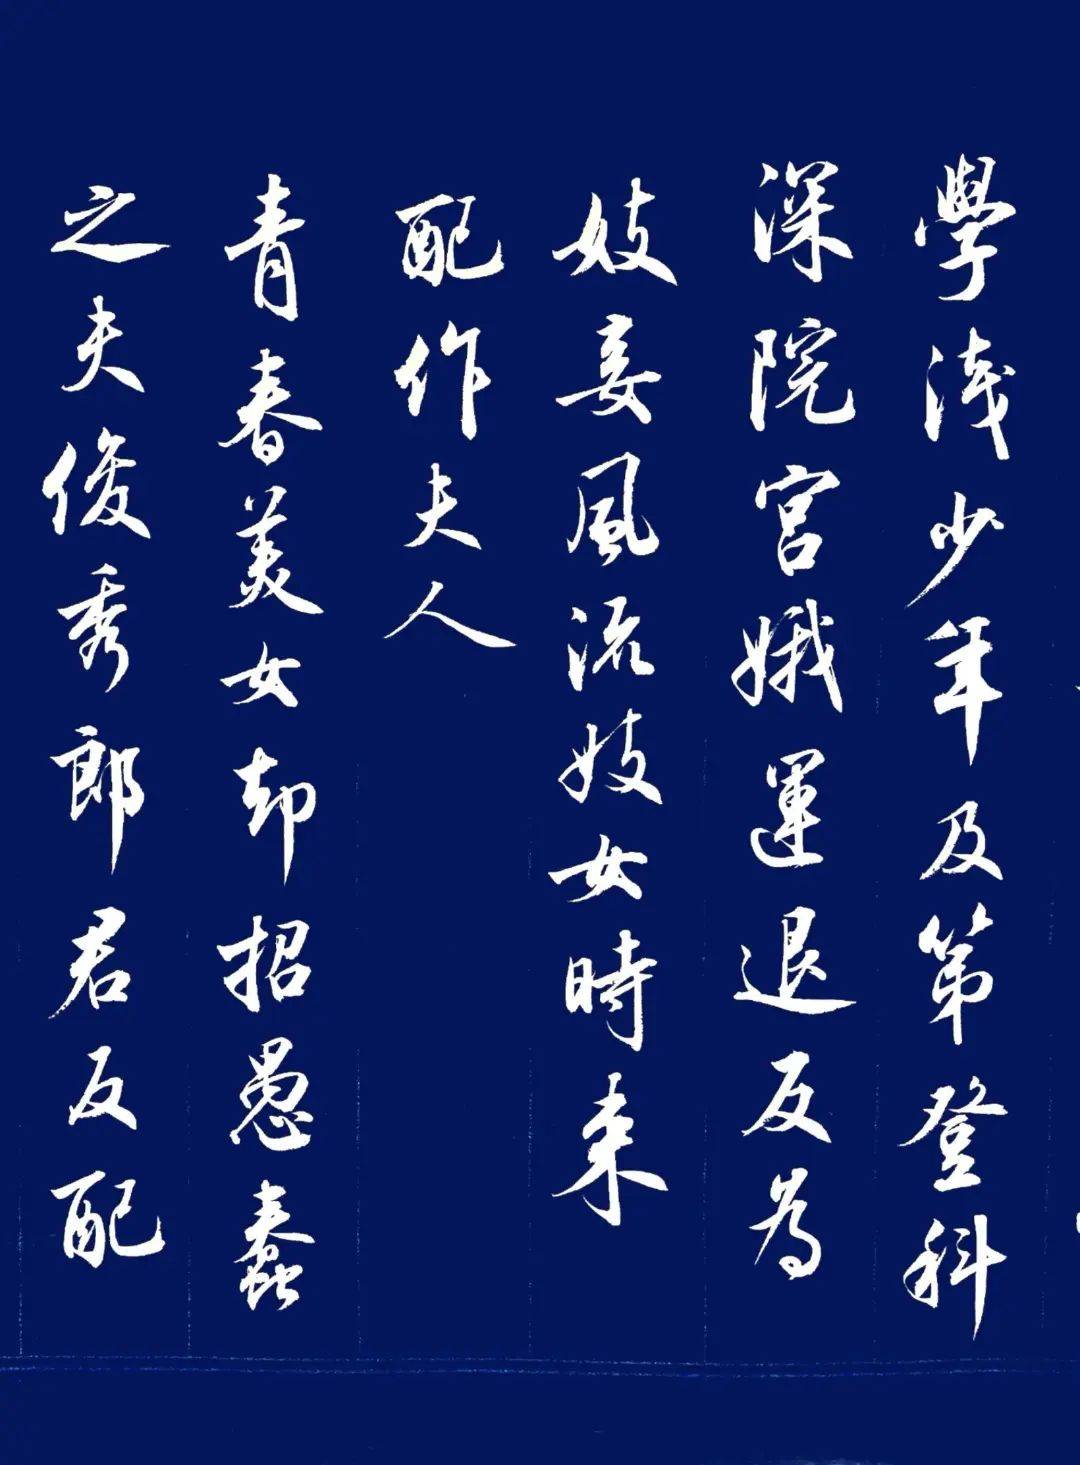 學淺少年及第登科
深院宮娥運退反為
妓妾風流妓女時来
配作夫人
青春美女却招愚蠢
之夫俊秀郎君反配